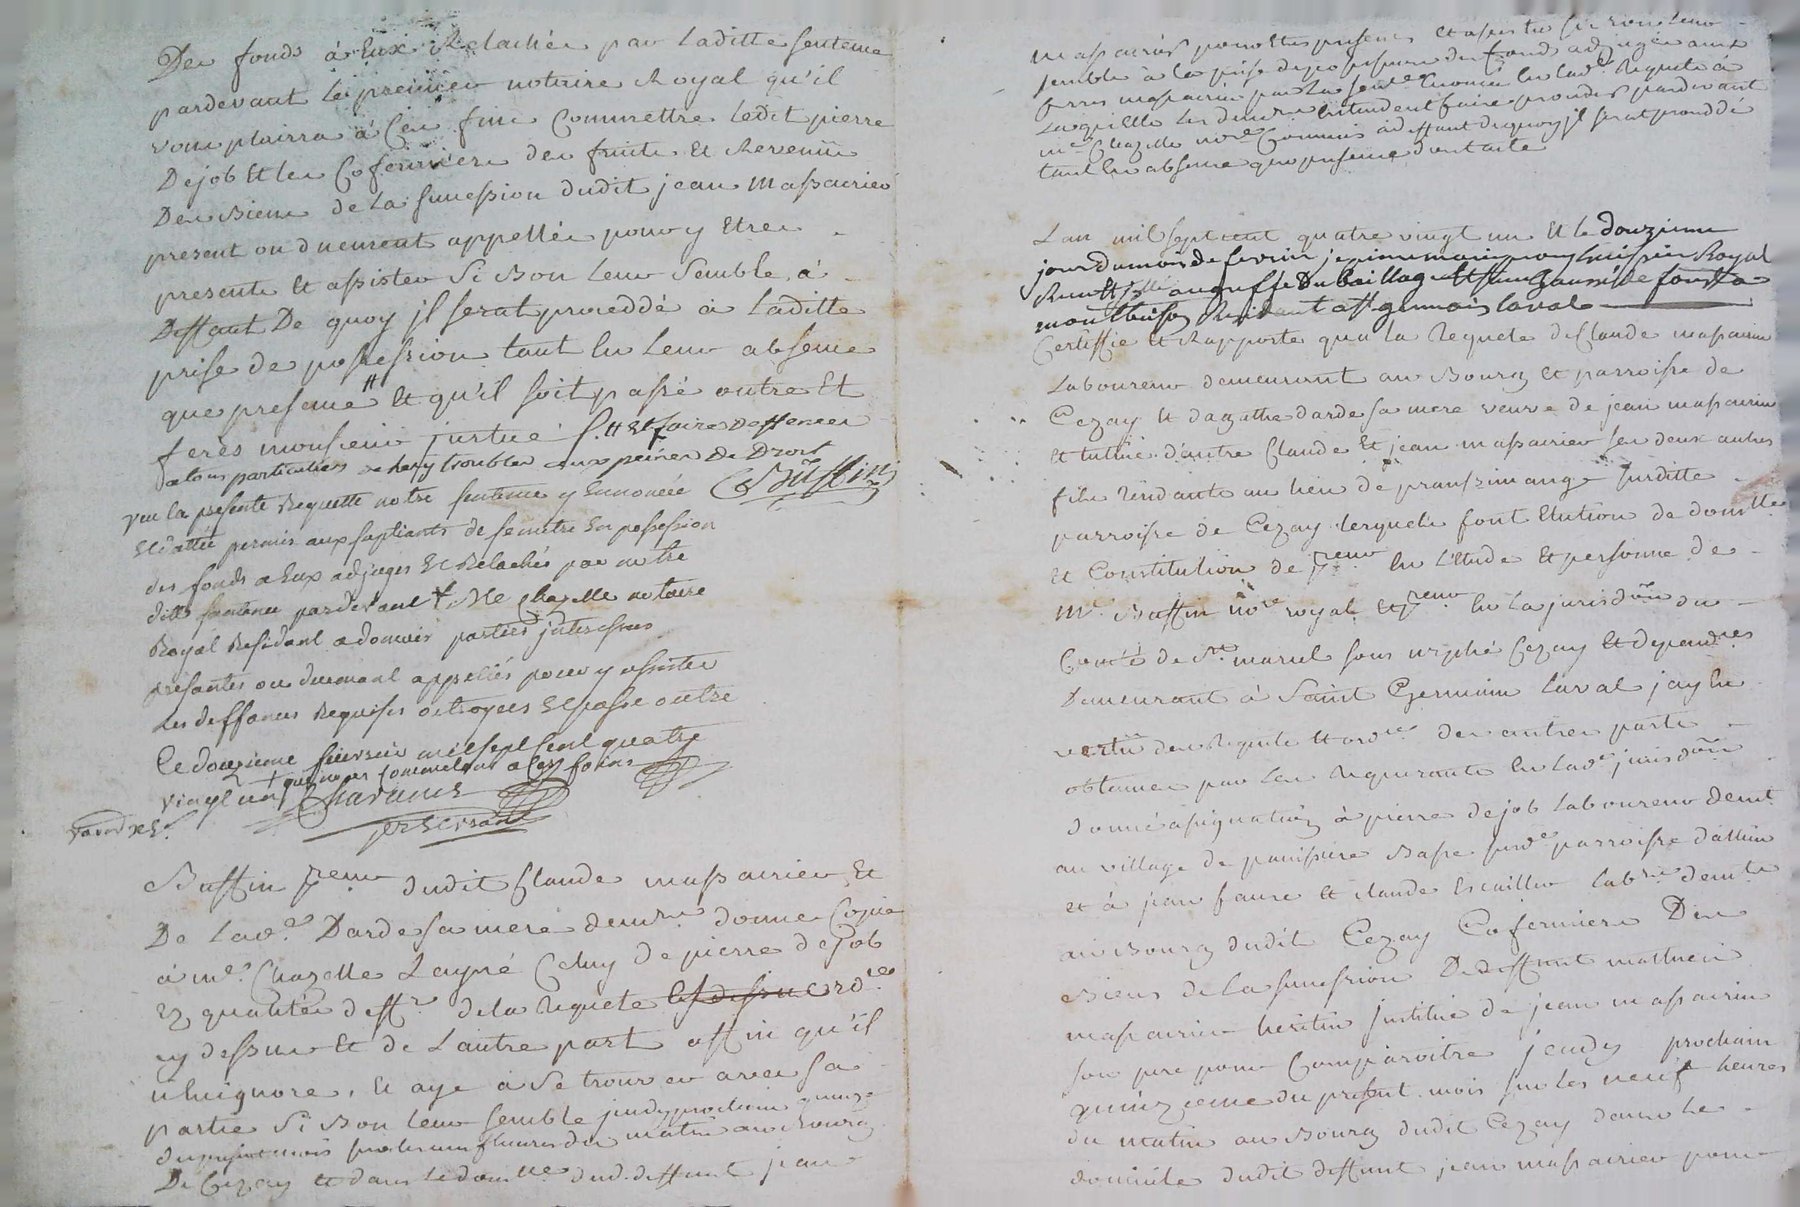 Des fonds à Eux Relachés par Laditte sentence
pardevant le premier notaire Royal qu'il
vous plairra à Ces fins Commettre ledit pierre
Dejob Et les Cofermiers des fruits Et Revenus
Des Biens de La succession dudit jean Massacrier
present ou duement appellés pour y Etre
presents Et assister si Bon Leur semble, à
Deffaut De quoy jl serat proceddé à Laditte
prise de possession tant En Leur absence
que presence Et qu'il soit passé outre Et
ferés monsieur justice Et faires Deffences
a tous particuliers de les y troubler aux peines De Droit
Buffin
Vue la presente Requette notre sentence y Enoncée
Et dattée permis aux supliants de se mettre En possession
des fonds a Eux adjuges Et Relachés par notre
ditte sentence pardevant Me Chazelle notaire
Royal Residant a parties jnteressées
présantes ou duemant appellés pour y assister
Les deffances Requises octroyees Et passé outre
Ce douzieme fevrier mil sept Cent quatre
vingt un que nous commettons a Ces fins
Chavanis

Buffin preur dudit Claude massacrier Et
De Lade Darde sa mere demrs donne Copie
à me Chazelle Layné Celuy de pierre dejob
Ez qualités de la Requete les dessus ord.ce
cy dessus Et de Lautre part affin qu'il
n'huignore, Et aye à se trouver avec sa
partie si Bon Leur semble jeudy prochain quinze
du present mois sur les neuf heures du matin au Bourg
De Cezay Et dans Le domlle dud. deffunt jean
massacrier pour Etre presents Et assister si Bon Leur
semble à La prise de possession des fonds adjugés aux
La quelle Les demrs Entendent faire proceder pardevant
me Chazelle nore Commis à deffaut de quoy jl serat proceddé
tant En absence que presence dont acte

Lan mil sept cent quatre vingt un Et le douzieme
jour du mois de fevrier je huissier Royal
au greffe Du Baillage
montbrison Residant a st germain laval
Certiffie Et Rapporte qu'a la Requete de Claude massacrier
Laboureur demeurant au Bourg Et parroisse de
Cezay Et dagathe darde sa mere veuve de jean massacrier
Et tutrice d'autre Claude Et jean massacrier ses deux autres
fils Residants au lieu de susditte
parroisse de Cezay lesquels font Election de domlle
Et Constitution de preur En L'Etude Et personne de
Me Buffin nore royal Et preur En La jurisdon du
Comté de st marcel sous urphé Cezay Et dependces
Demeurant à Saint Germain Laval jay En
vertu des Requete Et ordce des autres parts
obtenues par Les Requerants En Lade jurisdon
donné assignation à pierre dejob Laboureur demt
au village de Basse parroisse dailleux
Et à jean faure Et claude Escaillier Labrs demts
au Bourg dudit Cezay Cofermiers Des
Biens de La succession De deffunt mathieu
massacrier heritier Institué de jean massacrier
son pere pour Comparoitre jeudy prochain
quinzieme du present mois sur les neuf heures
du matin au Bourg dudit Cezay dans Le
domicile dudit deffunt jean massacrier pour